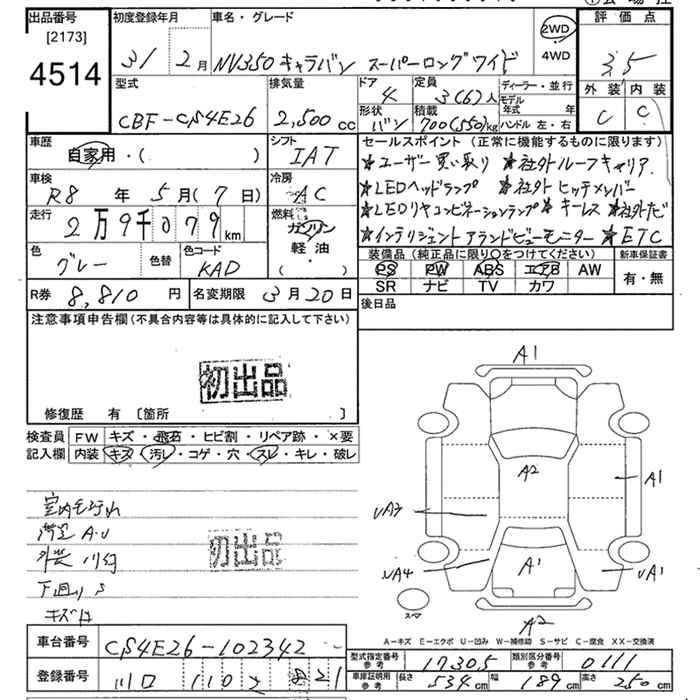 出品番号
[2173]
4514
初度登録年月
31 2月
車名・グレード
NV350 キャラバン スーパーロングワイド
2WD
4WD
評価点
3.5
外装 内装
C C
型式
CBF-CS4E26
排気量
2,500 cc
ドア
4
定員
3(6)人
形状
バン
積載
700(550)kg
ディーラー・並行
モデル年式 年
ハンドル 左・右
車歴
自家用・( )
シフト
IAT
車検
R8 年 5月(7日)
冷房
AC
走行
2万9千079km
燃料
ガソリン
軽油
( )
色
グレー
色替
色コード
KAD
R券 8,810 円
名変期限 3月20日
セールスポイント(正常に機能するものに限ります)
★ユーザー買い取り ★社外ルーフキャリア
★LEDヘッドランプ ★社外ヒッチメンバー
★LEDリヤコンビネーションランプ ★キーレス ★社外ナビ
★インテリジェントアランドビューモニター ★ETC
装備品(純正品に限り○をつけてください)
新車保証書
PS PW ABS エアB AW
SR ナビ TV カワ
有・無
後日品
注意事項申告欄(不具合内容等は具体的に記入して下さい)
初出品
修復歴 有 [箇所 ]
検査員記入欄
FW キズ・飛石・ヒビ割・リペア跡・×要
内装 キズ・汚レ・コゲ・穴・スレ・キレ・破レ
初出品
下廻りS
キズ
A1
A2
A1
UA3
UA4
A1
UA1
A2
スマ
A-キズ E-エクボ U-凹み W-補修跡 S-サビ C-腐食 XX-交換済
車台番号 CS4E26-102342
登録番号 川口 110 821
型式指定番号 参考 17305
類別区分番号 参考 0111
車庫証明用 参考 長さ 534cm 幅 189cm 高さ 250cm